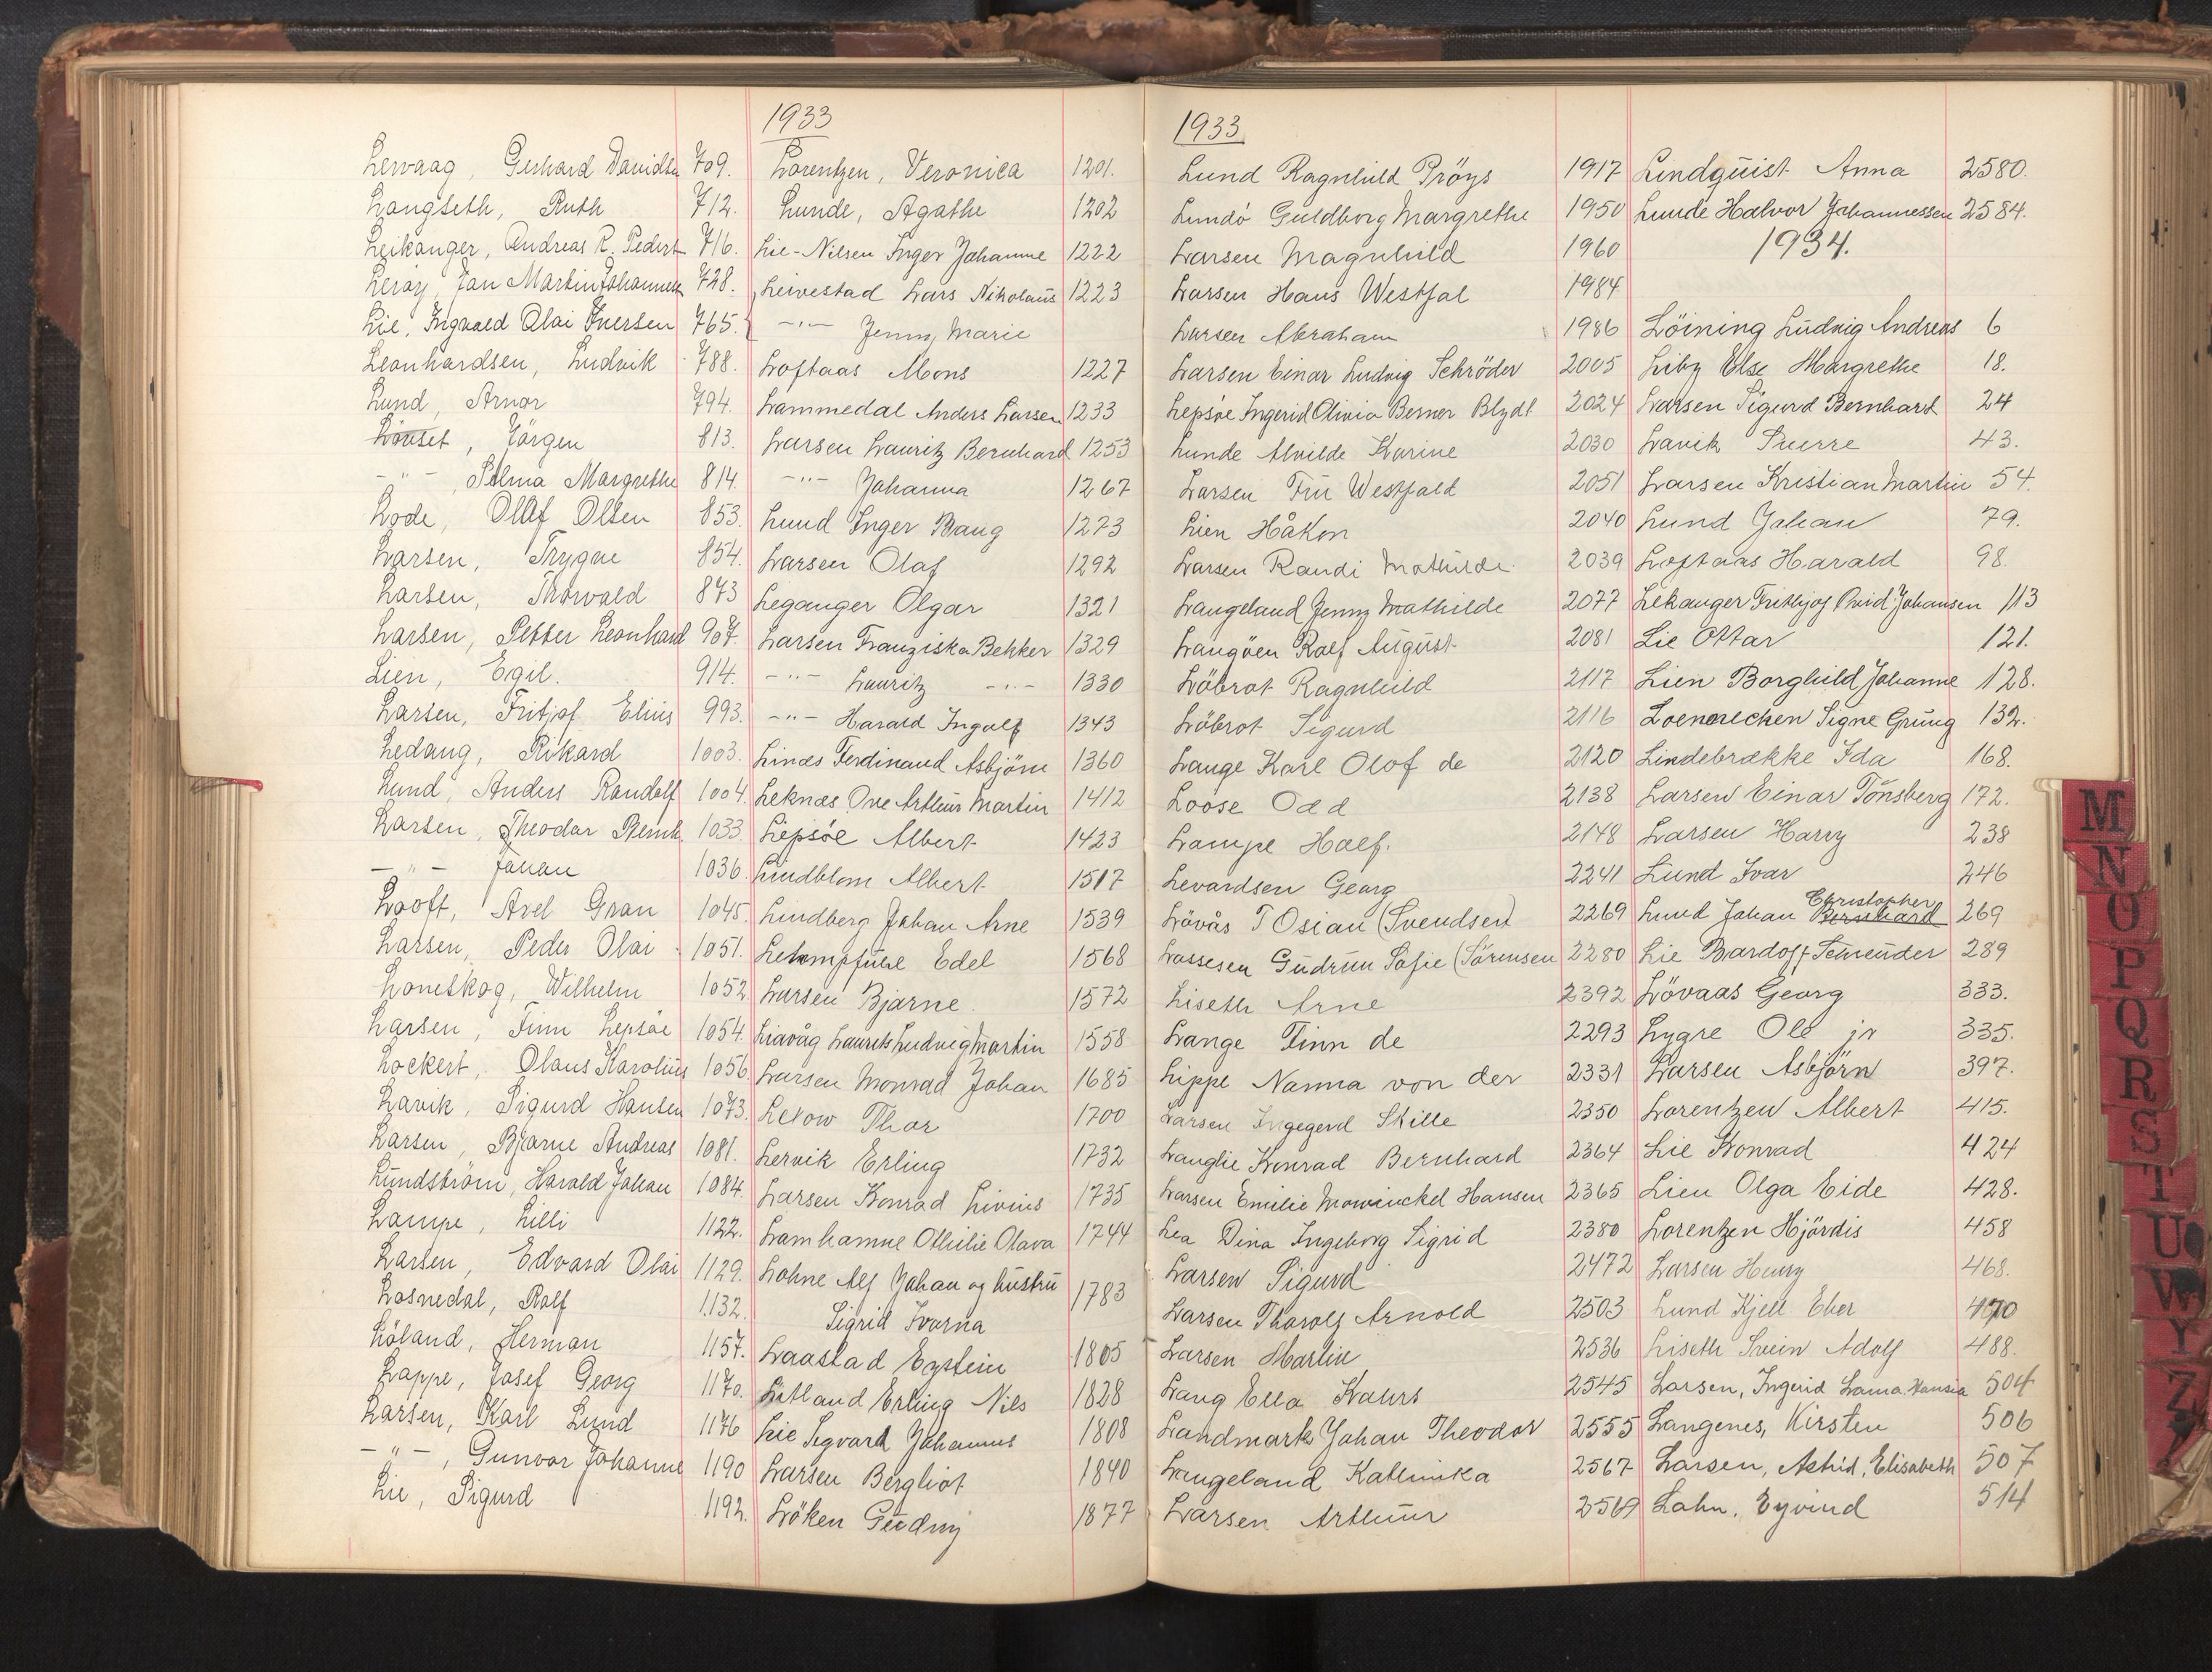 1933
Lervaag, Gerhard Davids 709.
Langseth, Ruth 712.
Leikanger, Andreas R. Peders 716.
Lerøy, Jan Martin Johannes 728.
Lie, Ingvald Olai Iversen 765.
Leonhardsen, Ludvik 788.
Lund, Arnor 794.
Lönset, Jörgen 813.
-"- , Selma Margrethe 814.
Lode, Olaf Olsen 853.
Larsen, Trygve 854.
Larsen, Thorvald 873
Larsen, Petter Leonhard 907.
Lien, Egil. 914.
Larsen, Fritjof Elius 993.
Ledang, Rikard 1003.
Lund, Anders Randolf 1004.
Larsen, Theodor Bernh. 1033.
-"- Johan 1036.
Looft, Axel Gran 1045.
Larsen, Peder Olai 1051.
Loneskog, Wilhelm 1052
Larsen, Finn Lepsøe 1054.
Lockert, Olaus Karolius 1056
Lavik, Sigurd Hansen 1073.
Larsen, Bjarne Andreas 1081.
Lundström, Harald Johan 1084.
Lampe, Lilli 1122.
Larsen, Edvard Olai 1129.
Losnedal, Rolf 1132.
Löland, Herman 1157.
Lappe, Josef Georg 1170.
Larsen, Karl Lund 1176
-"- , Gunvor Johanne 1190
Lie, Sigurd 1192.
Lorentzen, Veronica 1201.
Lunde, Agathe 1202
Lie-Nilsen Inger Johanne 1222
Leivestad Lars Nikolaus 1223
-"- Jenny Marie
Loftaas Mons 1227
Lammedal Anders Larsen 1233
Larsen Lauritz Bernhard 1253
-"- Johanna 1267
Lund Inger Bang 1273
Larsen Olaf 1292
Leganger Olgar 1321
Larsen Franziska Bekker 1329
-"- Lauritz -"- 1330
-"- Harald Ingolf 1343
Linds Ferdinand Asbjörn 1360
Leknæs Ove Arthur Martin 1412
Lepsøe Albert 1423
Lindblom Albert 1517
Lindberg Johan Arne 1539
Edel 1568
Larsen Bjarne 1572
Liavåg Laurits Ludvig Martin 1558
Larsen Monrad Johan 1685
Lexow Thor 1700
Lervik Erling 1732
Larsen Konrad Livius 1735
Lamhamne Othilie Olava 1744
Lohne Alf Johan og hustru
Sigrid Ivarna 1783
Laastad Eystein 1805
Litland Erling Nils 1828
Lie Sigvard Johannes 1808
Larsen Bergliot 1840
Löken Gudny 1877
1933
Lund Ragnhild Pröys 1917
Lundö Guldborg Margrethe 1950
Larsen Magnhild 1960
Larsen Hans Westfal 1984
Larsen Abraham 1986
Larsen Einar Ludvig Schröder 2005
Lepsøe Ingerid Olivia Berner Blydt 2024
Lunde Alvilde Karine 2030
Larsen Fru Westfald 2051
Lien Håkon 2040
Larsen Randi Mathilde 2039
Langeland Jenny Mathilde 2077
Langöen Rolf August 2081
Löbrot Ragnhild 2117
Löbrot Sigurd 2116
Lange Karl Olof de 2120
Loose Odd 2138
Lampe Half. 2148
Levardsen Georg 2241
Lövås T Osian (Svendsen) 2269
Lassesen Gudrun Sofie (Sörensen 2280
Liseth Arne 2392
Lange Finn de 2293
Lippe Nanna von der 2331
Larsen Ingegerd Skille 2350
Langlie Konrad Bernhard 2364
Larsen Emilie Mowinckel Hansen 2365
Lea Dina Ingeborg Sigrid 2380
Larsen Sigurd 2472
Larsen Tharolf Arnold 2503
Larsen Martin 2536
Lang Ella Kahrs 2545
Landmark Johan Theodor 2555
Langeland Kathinka 2567
Larsen Arthur 2569
Lindquist Anna 2580.
Lunde Halvor Johannessen 2584.
1934.
Löining Ludvig Andreas 6
Liby Else Margrethe 18.
Larsen Sigurd Bernhard 24
Lavik Sverre 43.
Larsen Kristian Martin 54.
Lund Johan 79.
Loftaas Harald 98.
Lekanger Frithjof Arvid Johansen 113
Lie Ottar 121.
Lien Borghild Johanne 128.
Loennecken Signe Grung 132.
Lindebrække Ida 168.
Larsen Einar Tönsberg 172.
Larsen Harry 238
Lund Ivar 246
Christopher
Lund Johan Bernhard 269
Lie Bardolf 289
Lövaas Georg 333.
Lygre Ole jr 335.
Larsen Asbjörn 397.
Lorentzen Albert 415.
Lie Konrad 424
Lien Olga Eide 428.
Lorentzen Hjördis 458
Larsen Henry 468.
Lund Kjell Eber 470
Liseth Svein Adolf 488.
Larsen, Ingerid Laura Hansia 504
Langenes, Kirsten 506
Larsen, Astrid, Elisabeth 507
Lahn, Eyvind 514
M
N
O
P
Q
R
S
T
U
W
Y
Z